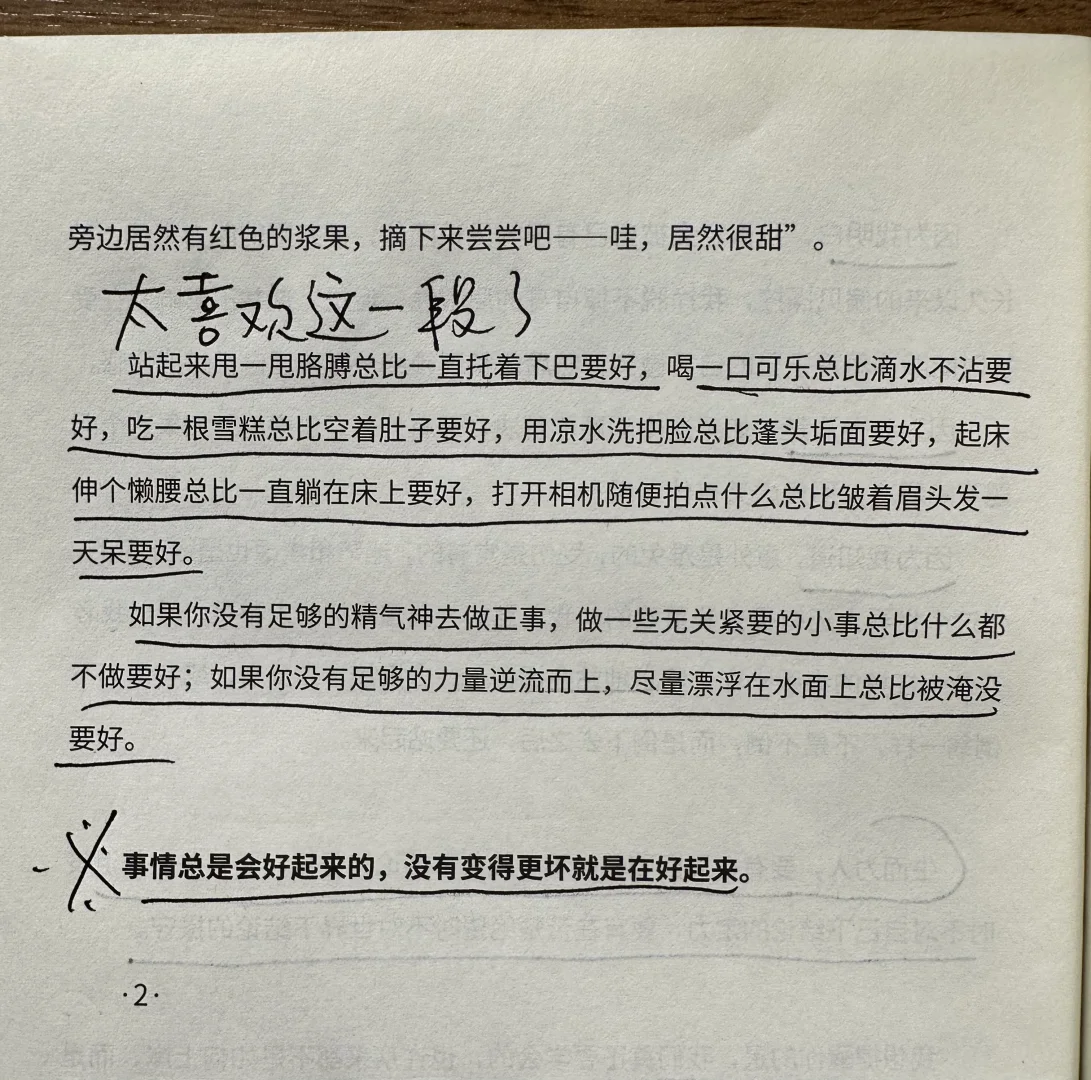 旁边居然有红色的浆果，摘下来尝尝吧——哇，居然很甜”。
太喜欢这一段了
站起来甩一甩胳膊总比一直托着下巴要好，喝一口可乐总比滴水不沾要
好，吃一根雪糕总比空着肚子要好，用凉水洗把脸总比蓬头垢面要好，起床
伸个懒腰总比一直躺在床上要好，打开相机随便拍点什么总比皱着眉头发一
天呆要好。
如果你没有足够的精气神去做正事，做一些无关紧要的小事总比什么都
不做要好；如果你没有足够的力量逆流而上，尽量漂浮在水面上总比被淹没
要好。
※ 事情总是会好起来的，没有变得更坏就是在好起来。
·2·